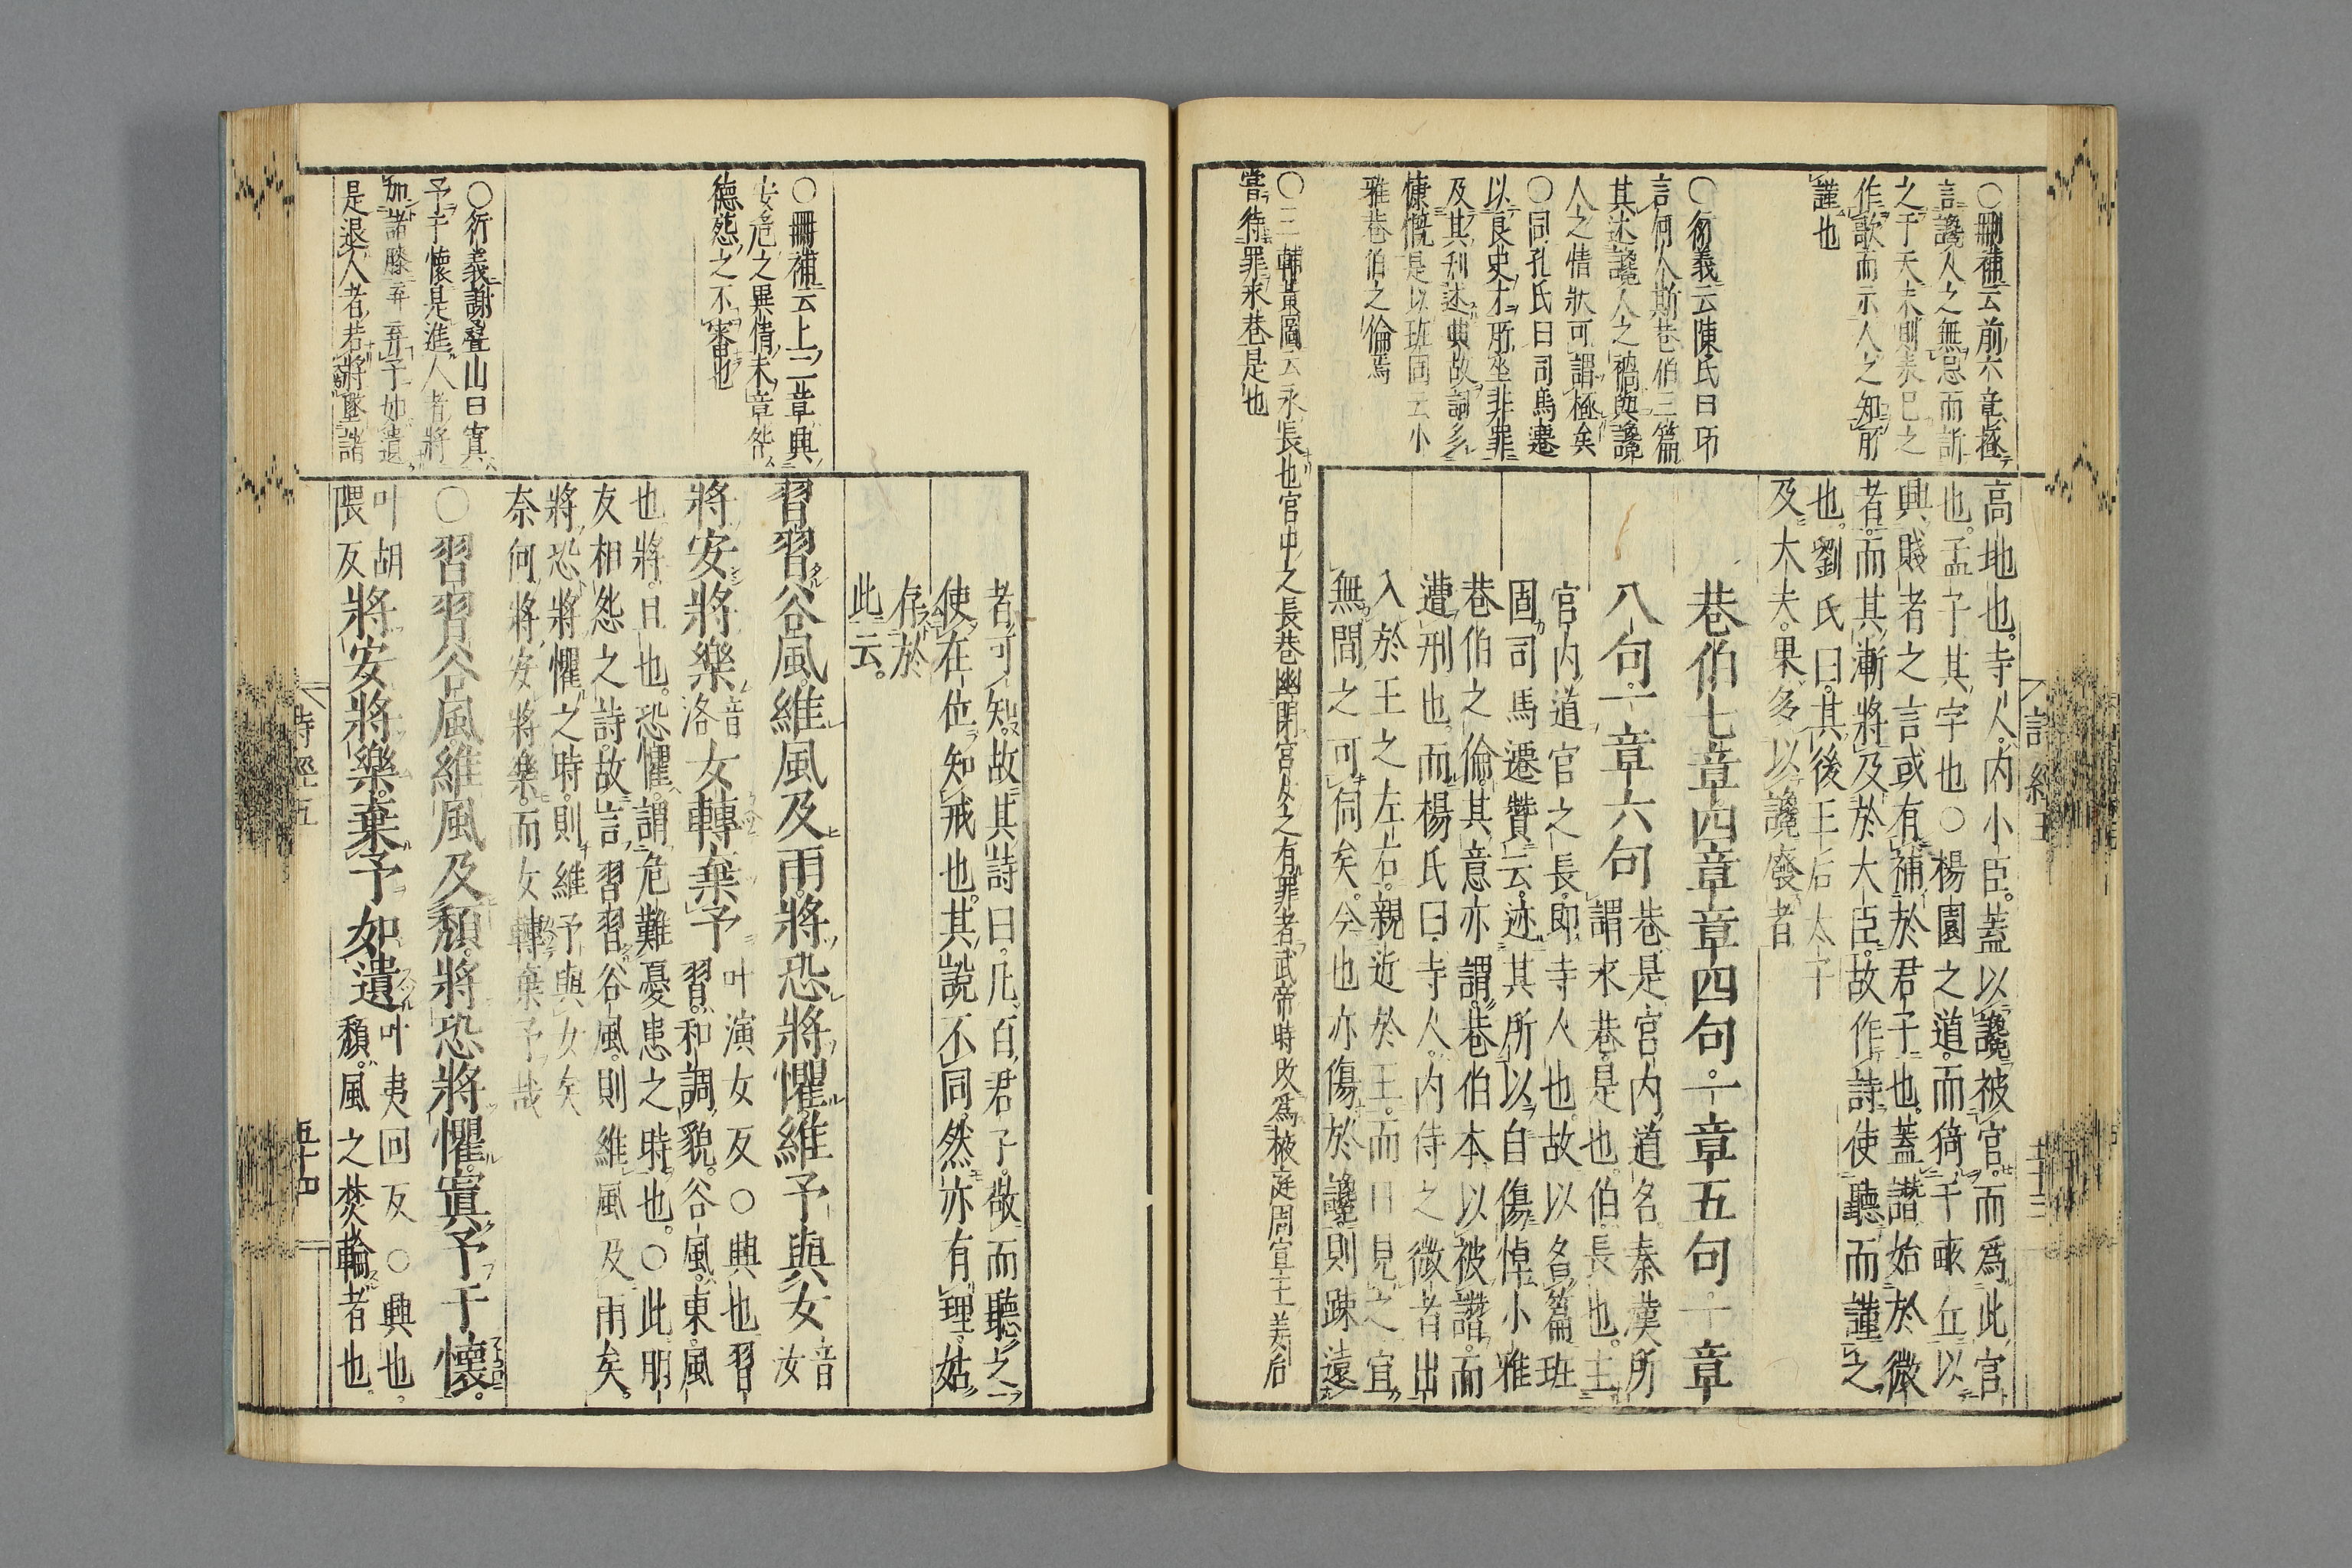 〇刪補云前六章極
言讒人之無忌而訴
之于天末則表己之
作歌而示人之知所
謹也
〇衍義云陳氏曰節
言何人斯巷伯三篇
其述讒人之禍與讒
人之情狀可謂極矣
〇同孔氏曰司馬遷
以良史才所坐非罪
及其刑述典故詞多
慷慨是以班固云小
雅巷伯之倫焉
〇三輔黃圖云永巷長也官中之長巷幽閉宮女之有罪者武帝時改爲掖庭周宣王姜后
嘗待罪永巷是也
高地也。寺人。内小臣。蓋以讒被宮。而爲此官
也。孟子其字也〇楊園之道。而猗于畝丘以
興賤者之言或有補於君子也。蓋譖始於微
者。而其漸將及於大臣。故作詩使聽而謹之
也。劉氏曰。其後王后太子
及大夫。果多以讒廢者
巷伯七章四章章四句。一章五句。一章
八句。一章六句
巷。是宮内道名。秦漢所
謂永巷。是也。伯。長也。主
宮内道官之長。即寺人也。故以名篇班
固司馬遷贊云。迹其所以自傷悼。小雅
巷伯之倫。其意亦謂。巷伯本以被譖。而
遭刑也。而楊氏曰。寺人。内侍之微者出
入於王之左右。親近於王。而日見之宜
無間之可伺矣。今也亦傷於讒則踈遠
詩經五
五十三
者可知。故其詩曰。凡百君子。敬而聽之
使在位知戒也。其說不同。然亦有理。姑
存於
此云。
〇刪補云上二章興
安危之異情末章咎
德怨之不審也
〇衍義謝疊山曰寘
予于懷是進人者將
加諸膝弃予如遺
是退人者若將墜諸
習習谷風。維風及雨。將恐將懼。維予與女
音
汝
將安將樂
音
洛
女轉棄予
叶演女反〇興也習
習。和調貌。谷風。東風
也將。且也。恐懼。謂危難憂患之時也。〇此明
友相怨之詩。故言。習習谷風。則維風及雨矣。
將恐將懼之時。則維予與女矣
奈何將安將樂。而女轉棄予哉
〇習習谷風維風及頹。將恐將懼。寘予于懷。
叶胡
隈反
將安將樂。棄予如遺
叶夷回反〇興也。
頹。風之焚輪者也。
詩經五
五十四